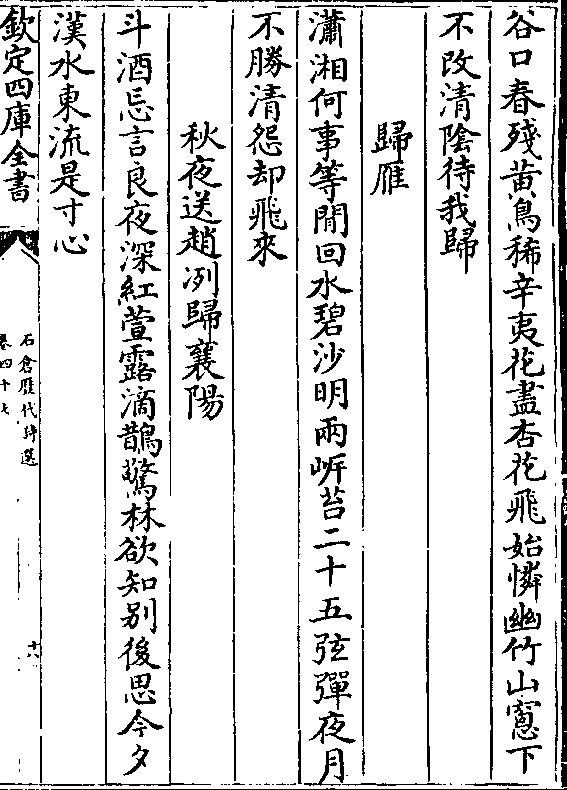 谷口春殘黃鳥稀辛夷花盡杏花飛始憐幽竹山窻下
不改清陰待我歸
歸雁
瀟湘何事等閒回水碧沙明兩岸苔二十五弦彈夜月
不勝清怨却飛來
秋夜送趙冽歸襄陽
斗酒忘言良夜深紅萱露滴鵲驚林欲知别後思今夕
漢水東流是寸心
欽定四庫全書
石倉歷代詩選
卷四十七
十六